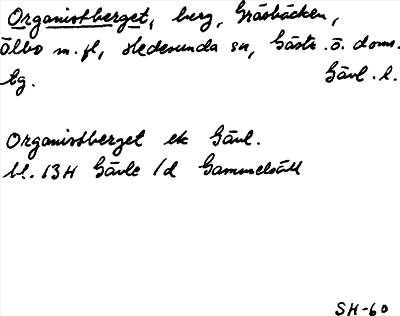 Organistberget, berg, Gräsbäcken,
Älbo m.fl, Hedesunda sn, Gästr. ö. doms.
lg. Gävl. l.
Organistberget ek Gävl.
bl. 13H Gävle 1d Gammelsäll
SH-60